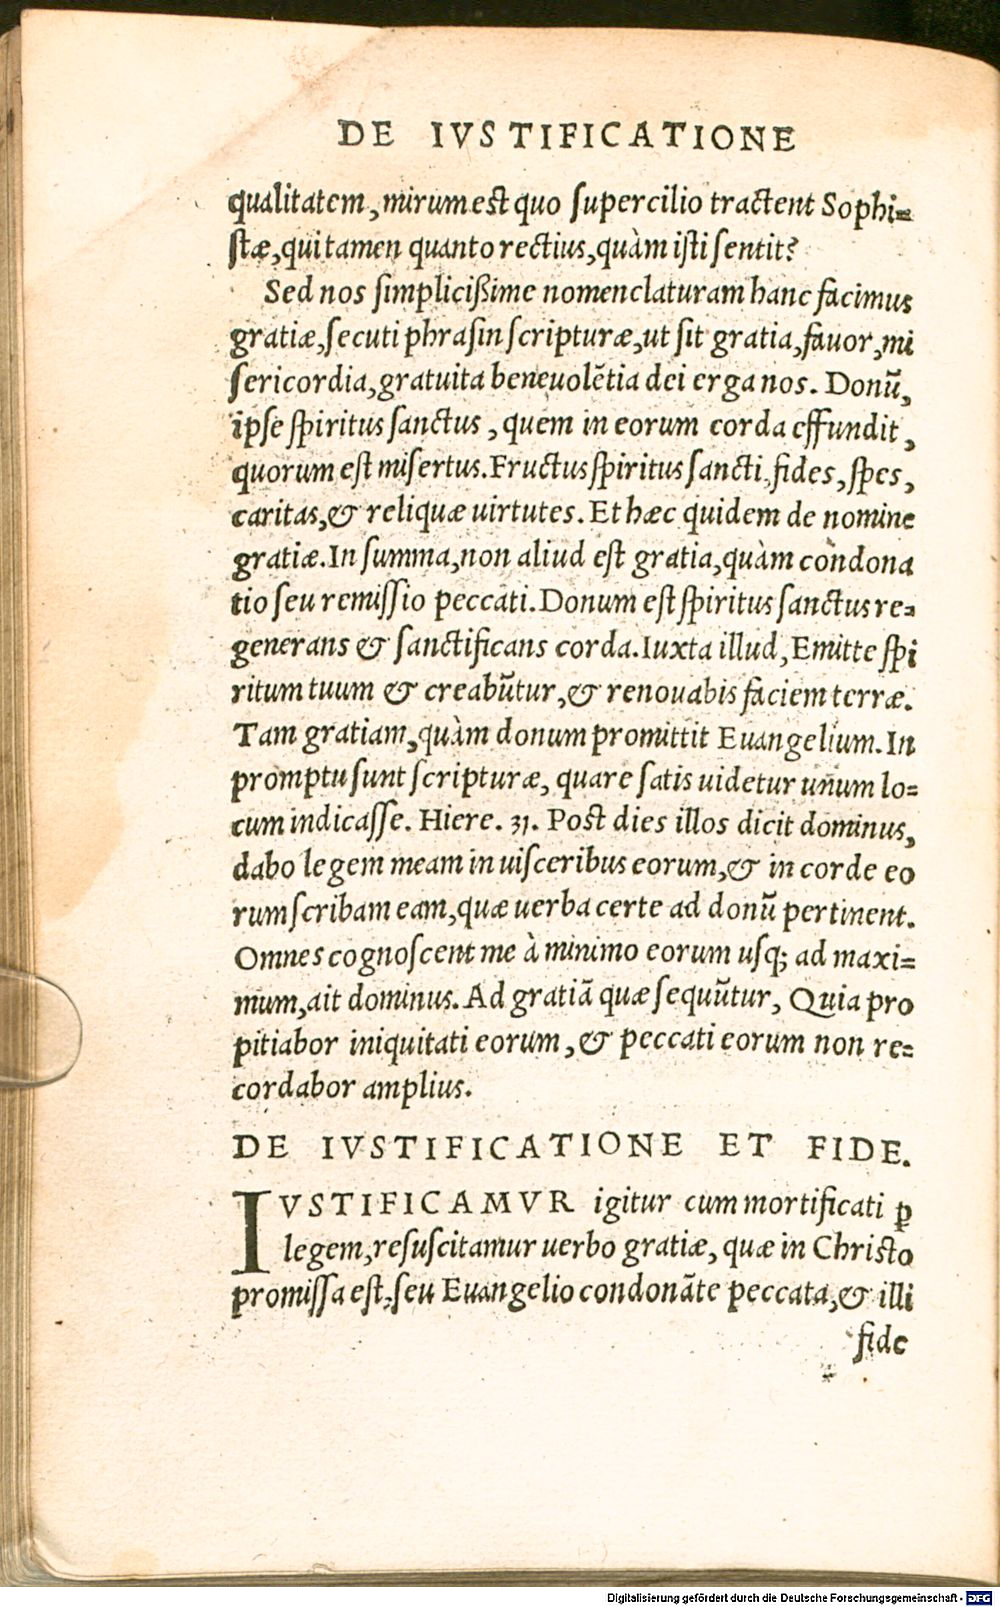 DE IVSTIFICATIONE
qualitatem, mirum est quo supercilio tractent Sophi=
stæ, qui tamen quanto rectius, quàm isti sentit?
Sed nos simplicißime nomenclaturam hanc facimus
gratiæ, secuti phrasin scripturæ, ut sit gratia, fauor, mi
sericordia, gratuita beneuolẽtia dei erga nos. Donũ,
ipse spiritus sanctus, quem in eorum corda effundit,
quorum est misertus. Fructus spiritus sancti, fides, spes,
caritas, & reliquæ uirtutes. Et hæc quidem de nomine
gratiæ. In summa, non aliud est gratia, quàm condona
tio seu remissio peccati. Donum est spiritus sanctus re=
generans & sanctificans corda. Iuxta illud, Emitte spi
ritum tuum & creabũtur, & renouabis faciem terræ.
Tam gratiam, quàm donum promittit Euangelium. In
promptu sunt scripturæ, quare satis uidetur unum lo=
cum indicasse. Hiere. 31. Post dies illos dicit dominus,
dabo legem meam in uisceribus eorum, & in corde eo
rum scribam eam, quæ uerba certe ad donũ pertinent.
Omnes cognoscent me à minimo eorum usq; ad maxi=
mum, ait dominus. Ad gratiã quæ sequũtur, Quia pro
pitiabor iniquitati eorum, & peccati eorum non re=
cordabor amplius.
DE IVSTIFICATIONE ET FIDE.
IVSTIFICAMVR igitur cum mortificati ꝑ
legem, resuscitamur uerbo gratiæ, quæ in Christo
promissa est, seu Euangelio condonãte peccata, & illi
fide
Digitalisierung gefördert durch die Deutsche Forschungsgemeinschaft - DFG